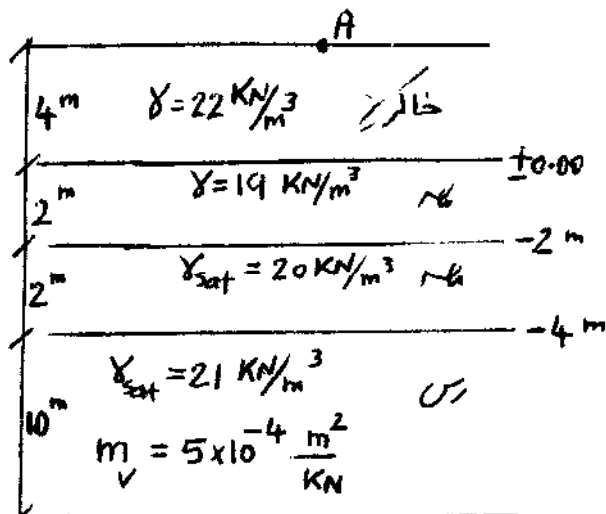 A
4 m γ = 22 KN/m³ خاکریز
±0.00
2 m γ = 19 KN/m³ ماسه
-2 m
2 m γsat = 20 KN/m³ ماسه
-4 m
γsat = 21 KN/m³
10 m رس
m_v = 5×10⁻⁴ m²/KN